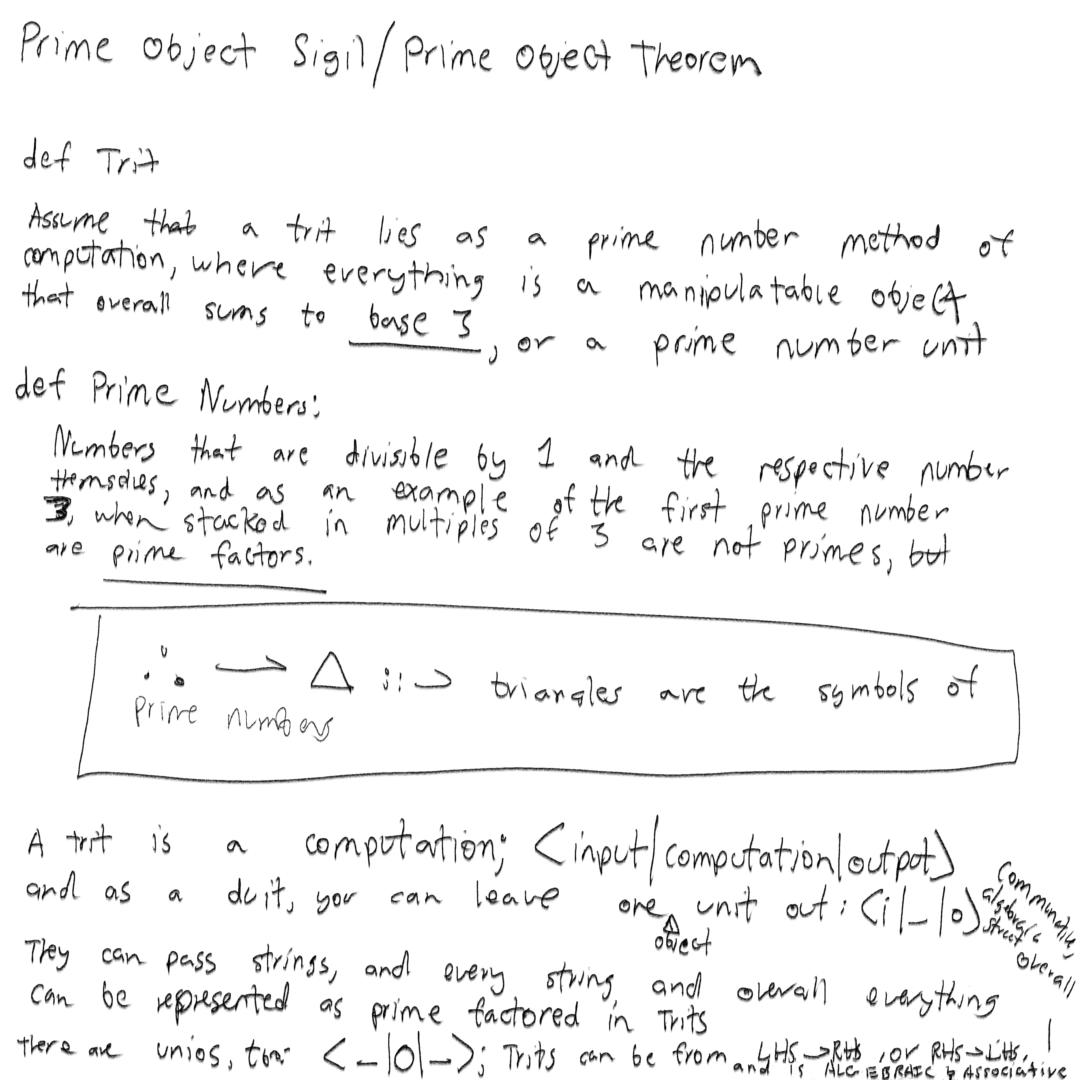 Prime Object Sigil/Prime Object Theorem
def Trit
Assume that a trit lies as a prime number method of
computation, where everything is a manipulatable object,
that overall sums to base 3, or a prime number unit
def Prime Numbers:
Numbers that are divisible by 1 and the respective number
themselves, and as an example of the first prime number
3, when stacked in multiples of 3 are not primes, but
are prime factors.
∴ → △ :: → triangles are the symbols of
prime numbers
A trit is a computation; <input|computation|output>
and as a duit, you can leave one unit out: <i|_|o>
△
object
Commutative
algebraic
struct
overall
They can pass strings, and every string, and overall everything
can be represented as prime factored in Trits
there are unios, too: <_|o|_>; Trits can be from LHS→RHS, or RHS→LHS,
and is ALGEBRAIC & Associative